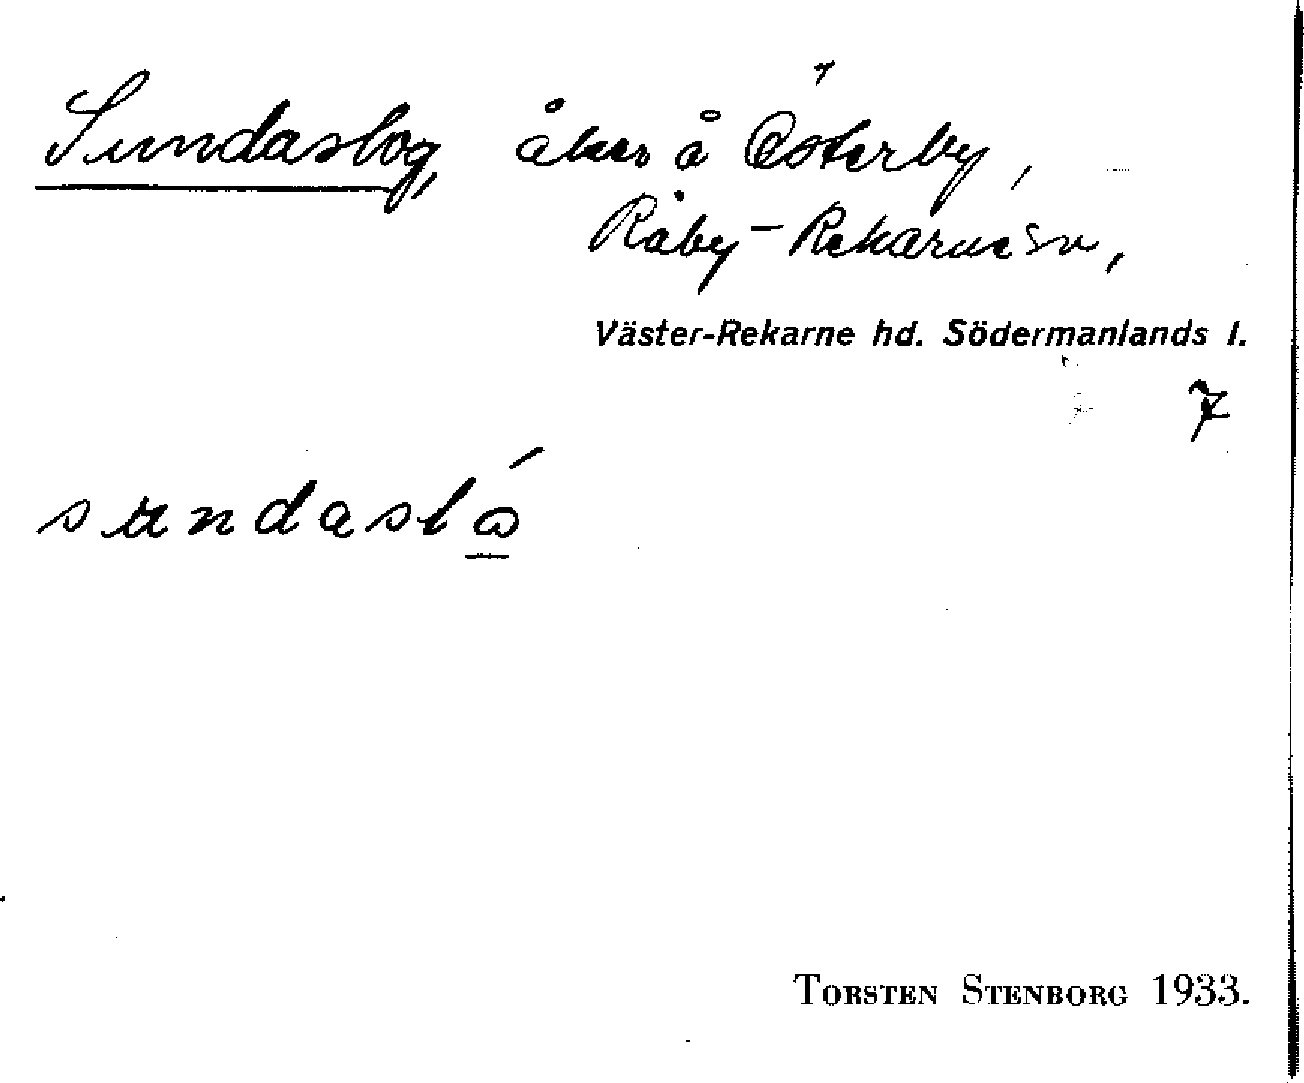 Sundaslog, åker å Österby,
Råby-Rekarne sn,
Väster-Rekarne hd. Södermanlands l.
7
sundaslǫ́
TORSTEN STENBORG 1933.